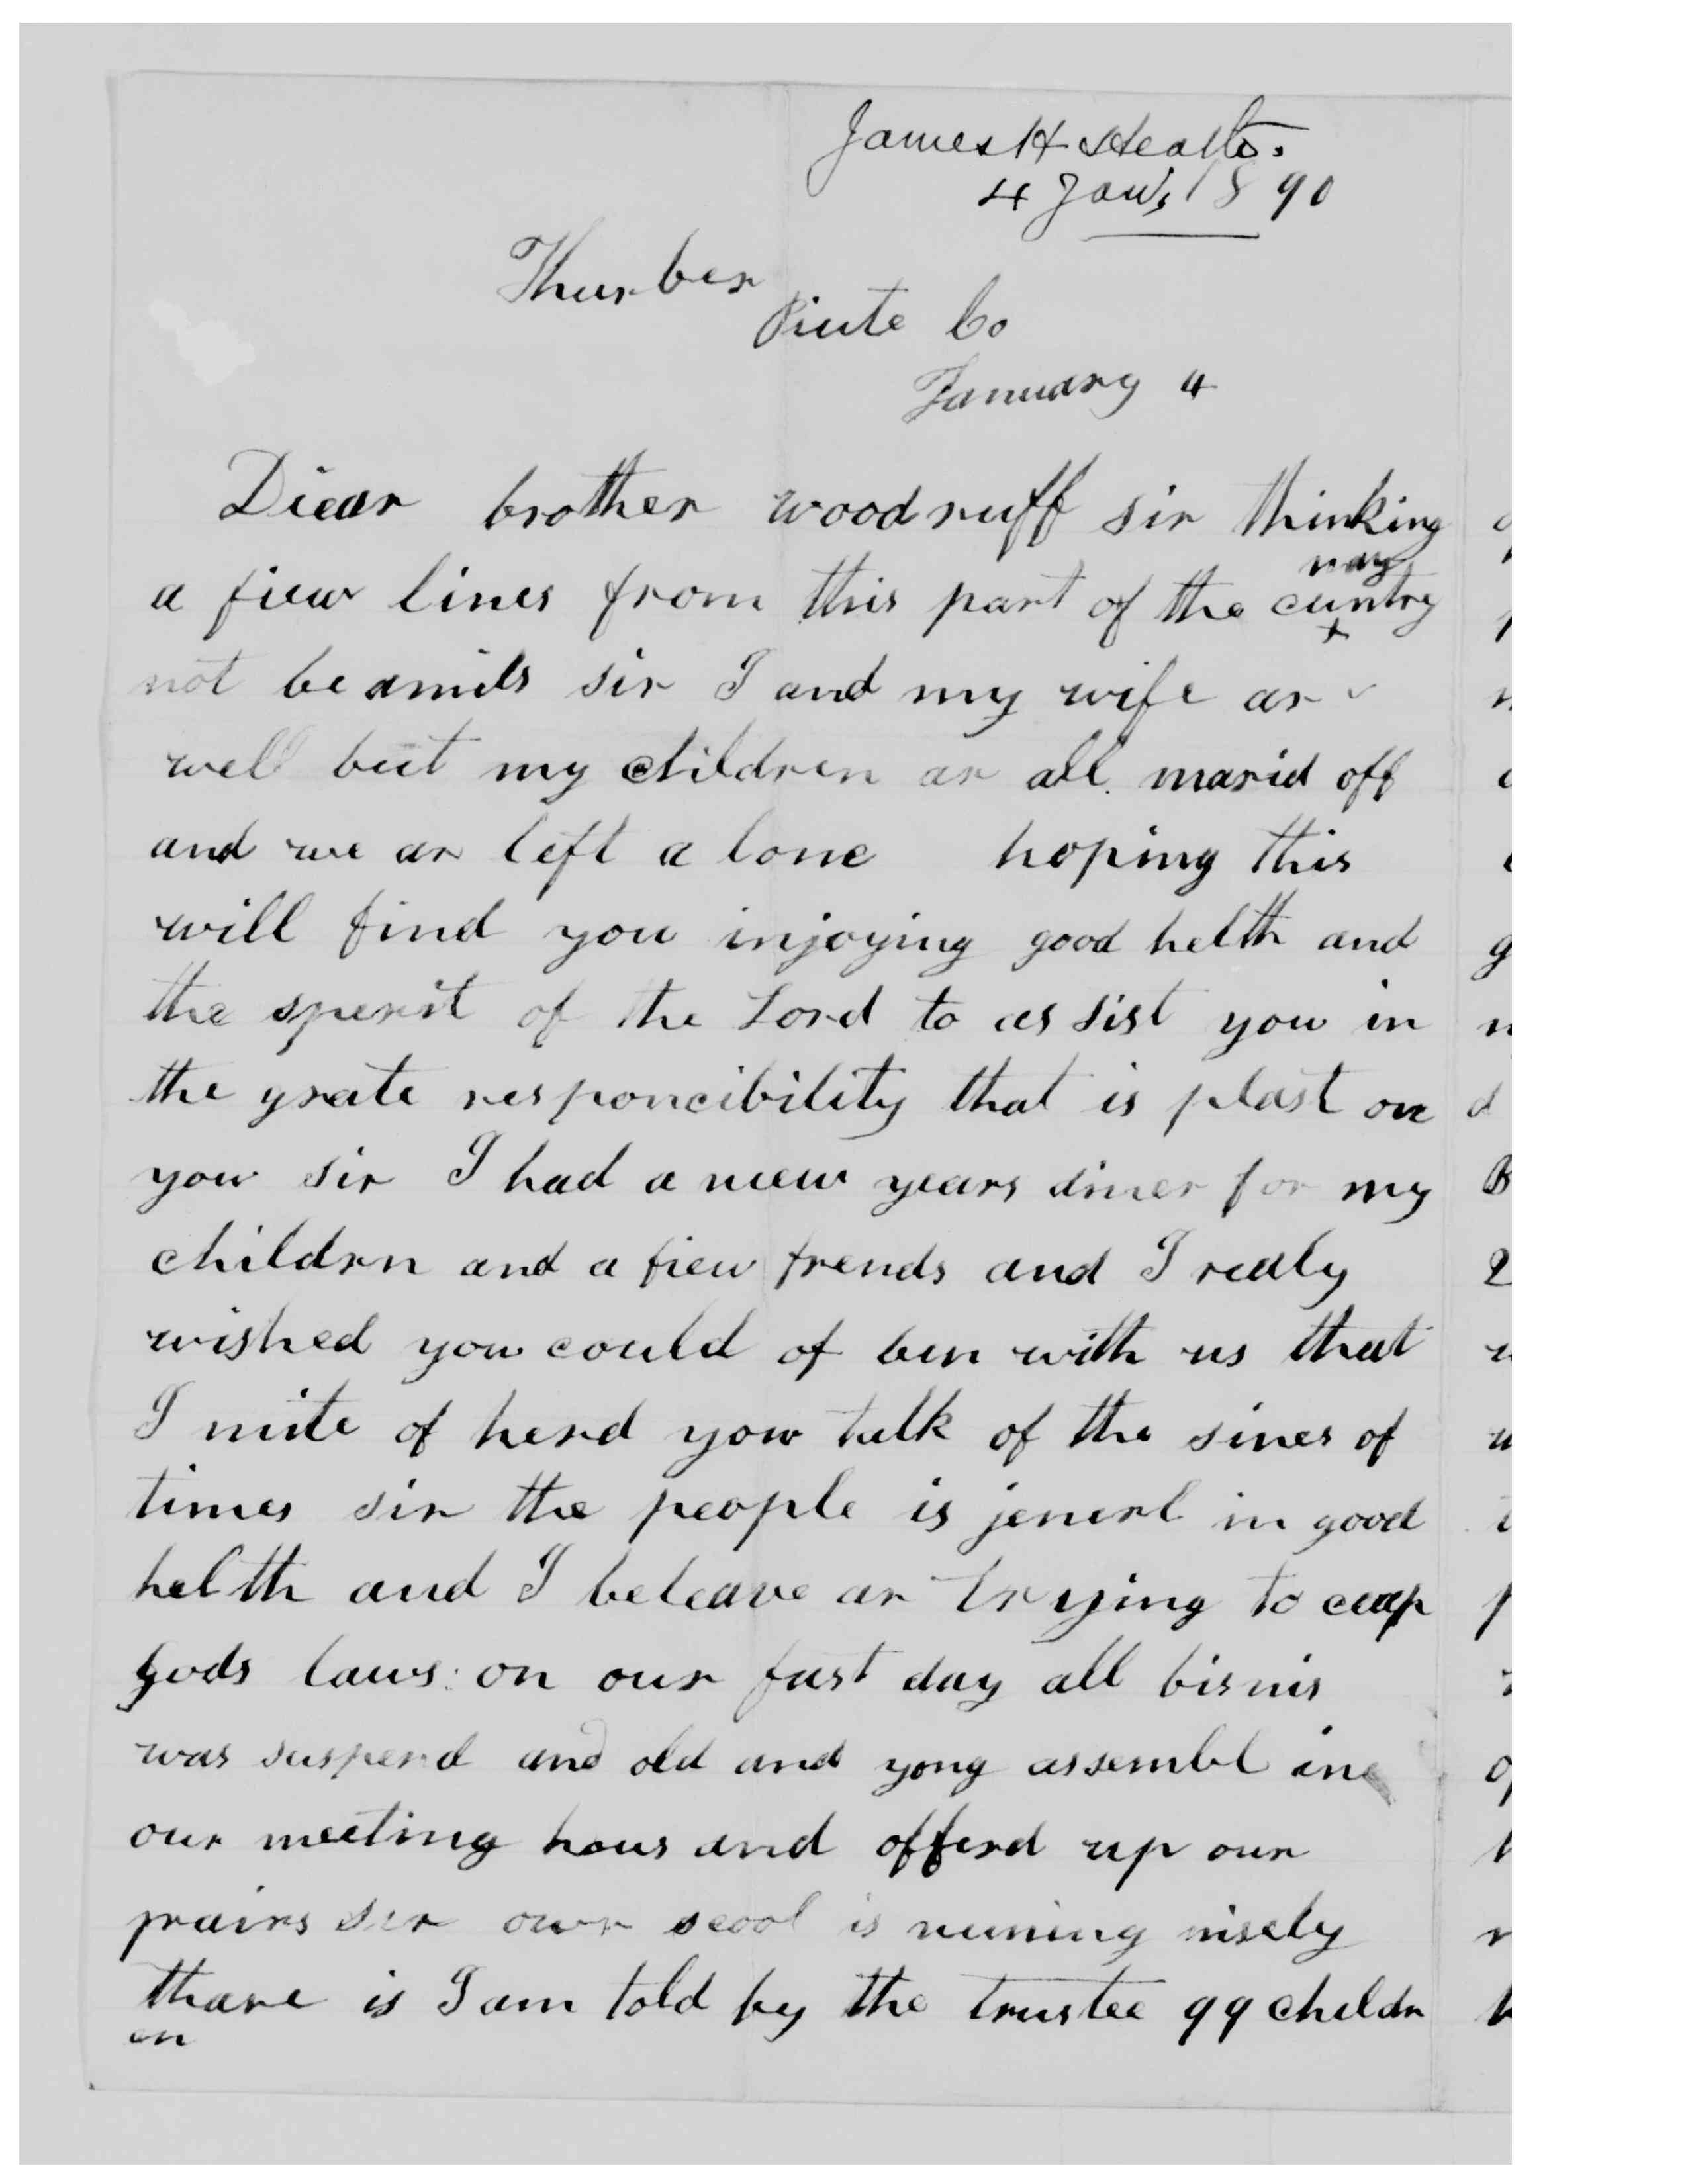 James H Heath.
4 Jan, 1890
Thurber
Piute Co
January 4
Diear brother woodruff sir thinking
a fiew lines from this part of the cuntry may
not be amis sir I and my wife ar
well but my children ar all marid off
and we ar left a lone hoping this
will find you injoying good helth and
the sperit of the Lord to assist you in
the grate responcibility that is plast on
you sir I had a niew years diner for my
childrn and a fiew frends and I realy
wished you could of ben with us that
I mite of herd you talk of the sines of
times sir the people is jenerl in good
helth and I beleave ar trying to ceap
gods laws on our fast day all bisnis
was suspend and old and yong assembl in
our meeting hous andófferd up our
prairs sir our scool is runing nisely
thare is I am told by the trustee 99 childr
en